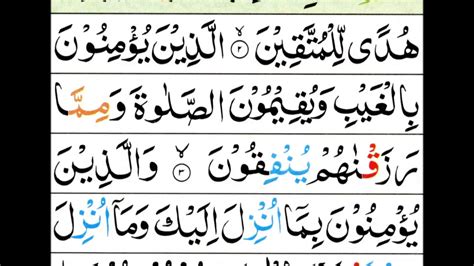 هُدًى لِّلْمُتَّقِيْنَ ۝٢ الَّذِيْنَ يُؤْمِنُوْنَ
بِالْغَيْبِ وَيُقِيْمُوْنَ الصَّلٰوةَ وَمِمَّا
رَزَقْنٰهُمْ يُنْفِقُوْنَ ۝٣ وَالَّذِيْنَ
يُؤْمِنُوْنَ بِمَاۤ اُنْزِلَ اِلَيْكَ وَمَاۤ اُنْزِلَ